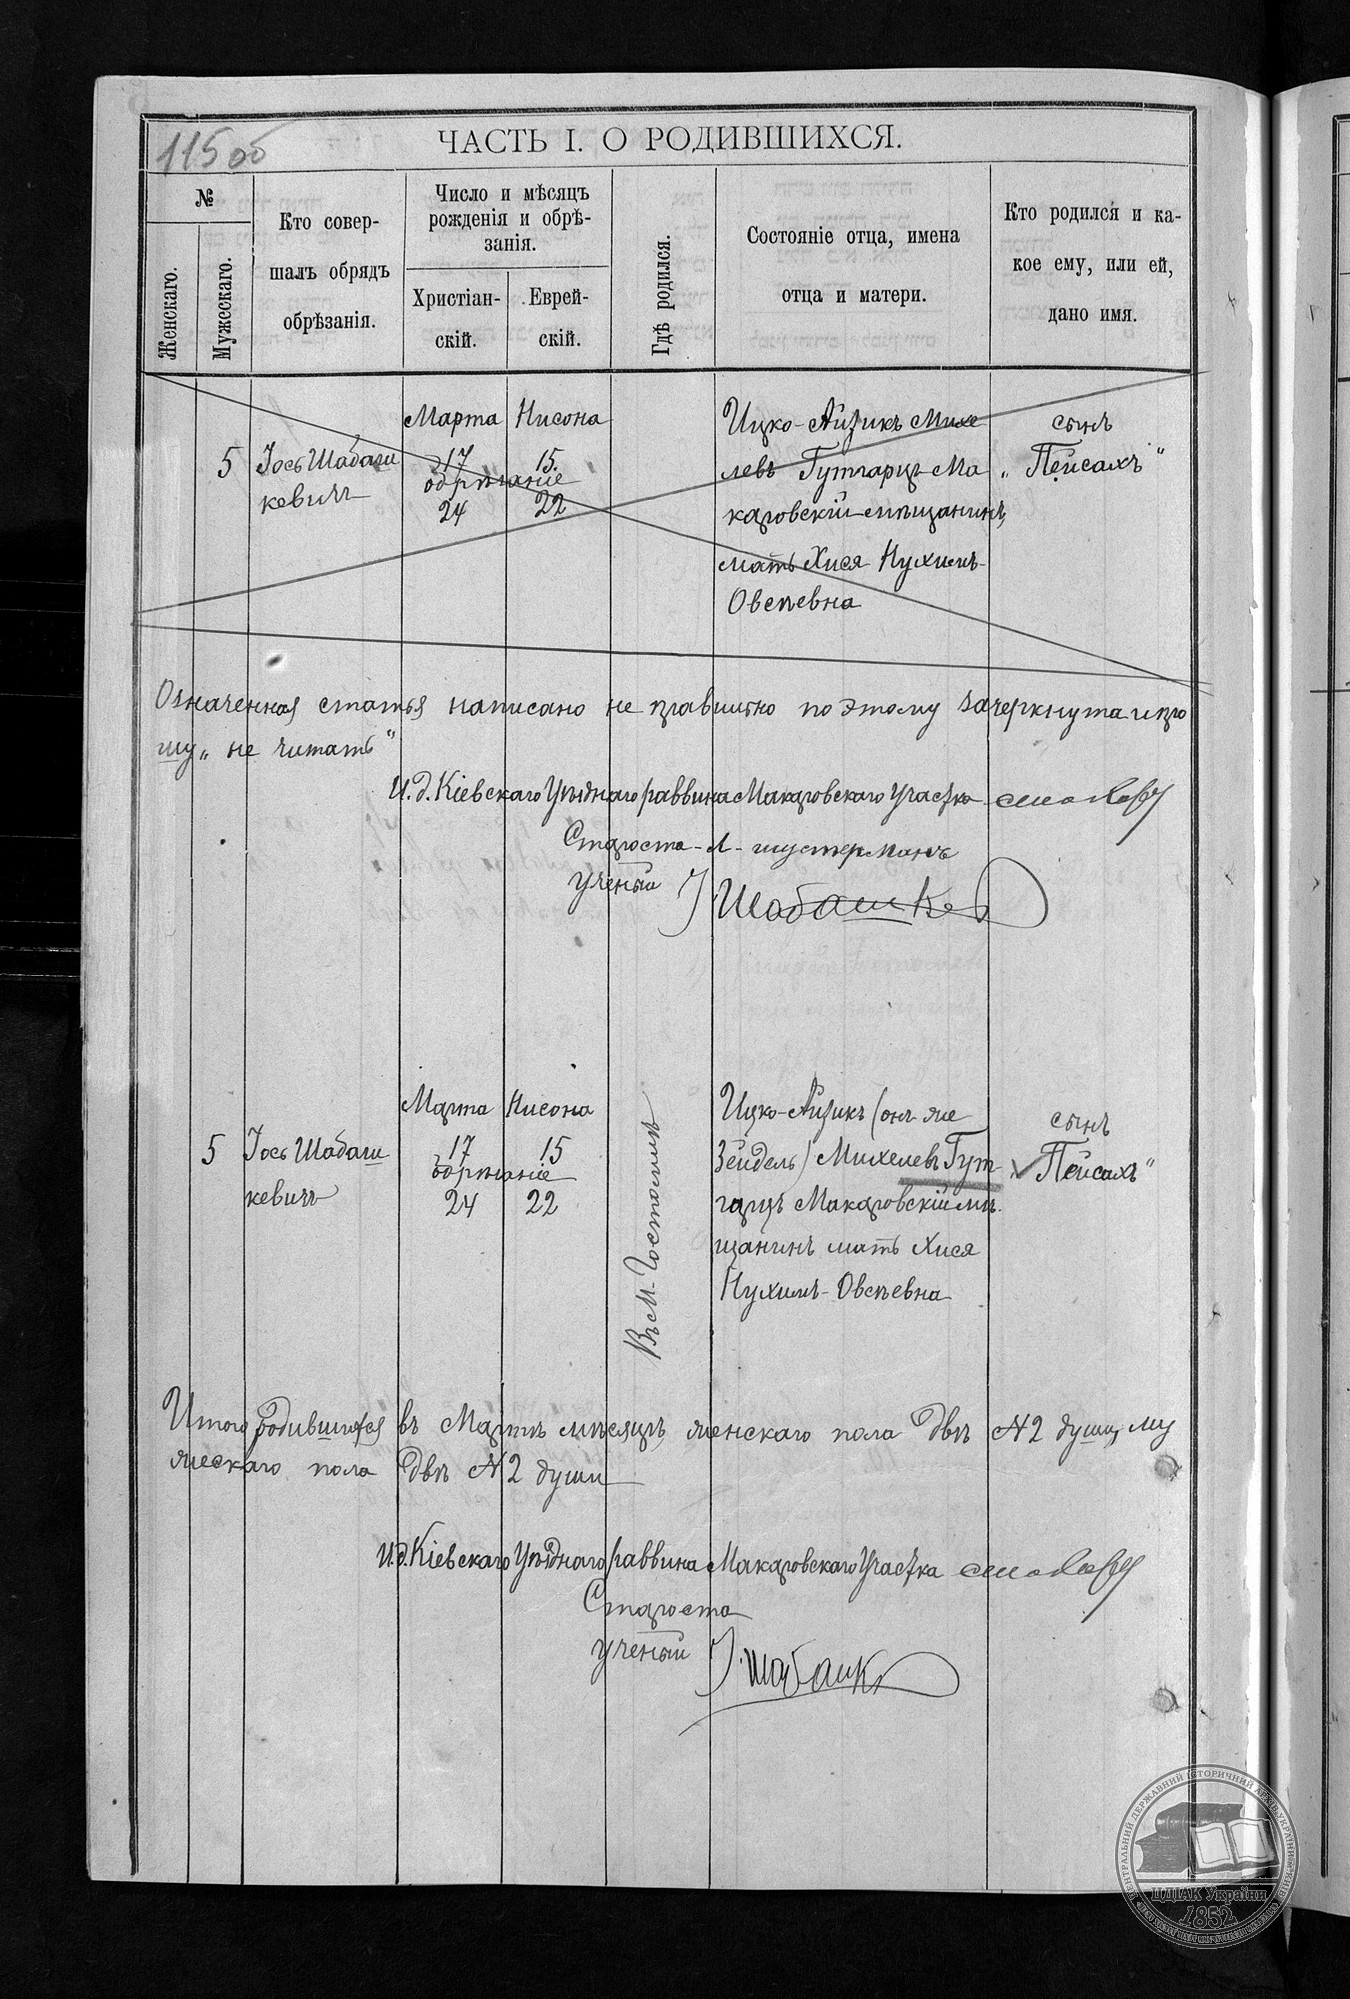 115 об
ЧАСТЬ I. О РОДИВШИХСЯ.
№
Женскаго.
Мужескаго.
Кто совер-
шалъ обрядъ
обрѣзанія.
Число и мѣсяцъ
рожденія и обрѣ-
занія.
Христіан-
скій.
Еврей-
скій.
Гдѣ родился.
Состояніе отца, имена
отца и матери.
Кто родился и ка-
кое ему, или ей,
дано имя.
5
Іось Шабаш
кевичъ
Марта
17
Нисона
15
обрѣзаніе
24
22
Ицко-Айзикъ Михе
левъ Гутгарцъ Ма
каровскій мѣщанинъ,
мать Хися Нухимъ-
Овсѣевна
сынъ
„Пейсахъ"
Означенная статья написано не правильно по этому зачеркнута и про
шу „не читать"
И. д. Кіевскаго Уѣзднаго раввина Макаровскаго Участка
Староста - Л - шустерманъ
ученый І Шабашкев
5
Іось Шабаш
кевичъ
Марта
17
Нисона
15
обрѣзаніе
24
22
Въ М. Гостомлѣ
Ицко-Айзикъ (онъ же
Зейдель) Михелевъ Гут-
гарцъ Макаровскій мѣ-
щанинъ мать Хися
Нухимъ-Овсѣевна
сынъ
„Пейсахъ"
Итого родившихся въ Мартѣ мѣсяцѣ, женскаго пола двѣ №2 души, му
жескаго пола двѣ №2 души
И. д. Кіевскаго Уѣзднаго раввина Макаровскаго Участка
Староста
ученый І. Шабашк
ЦЕНТРАЛЬНИЙ ДЕРЖАВНИЙ ІСТОРИЧНИЙ АРХІВ УКРАЇНИ, М. КИЇВ
ЦДІАК України
1852